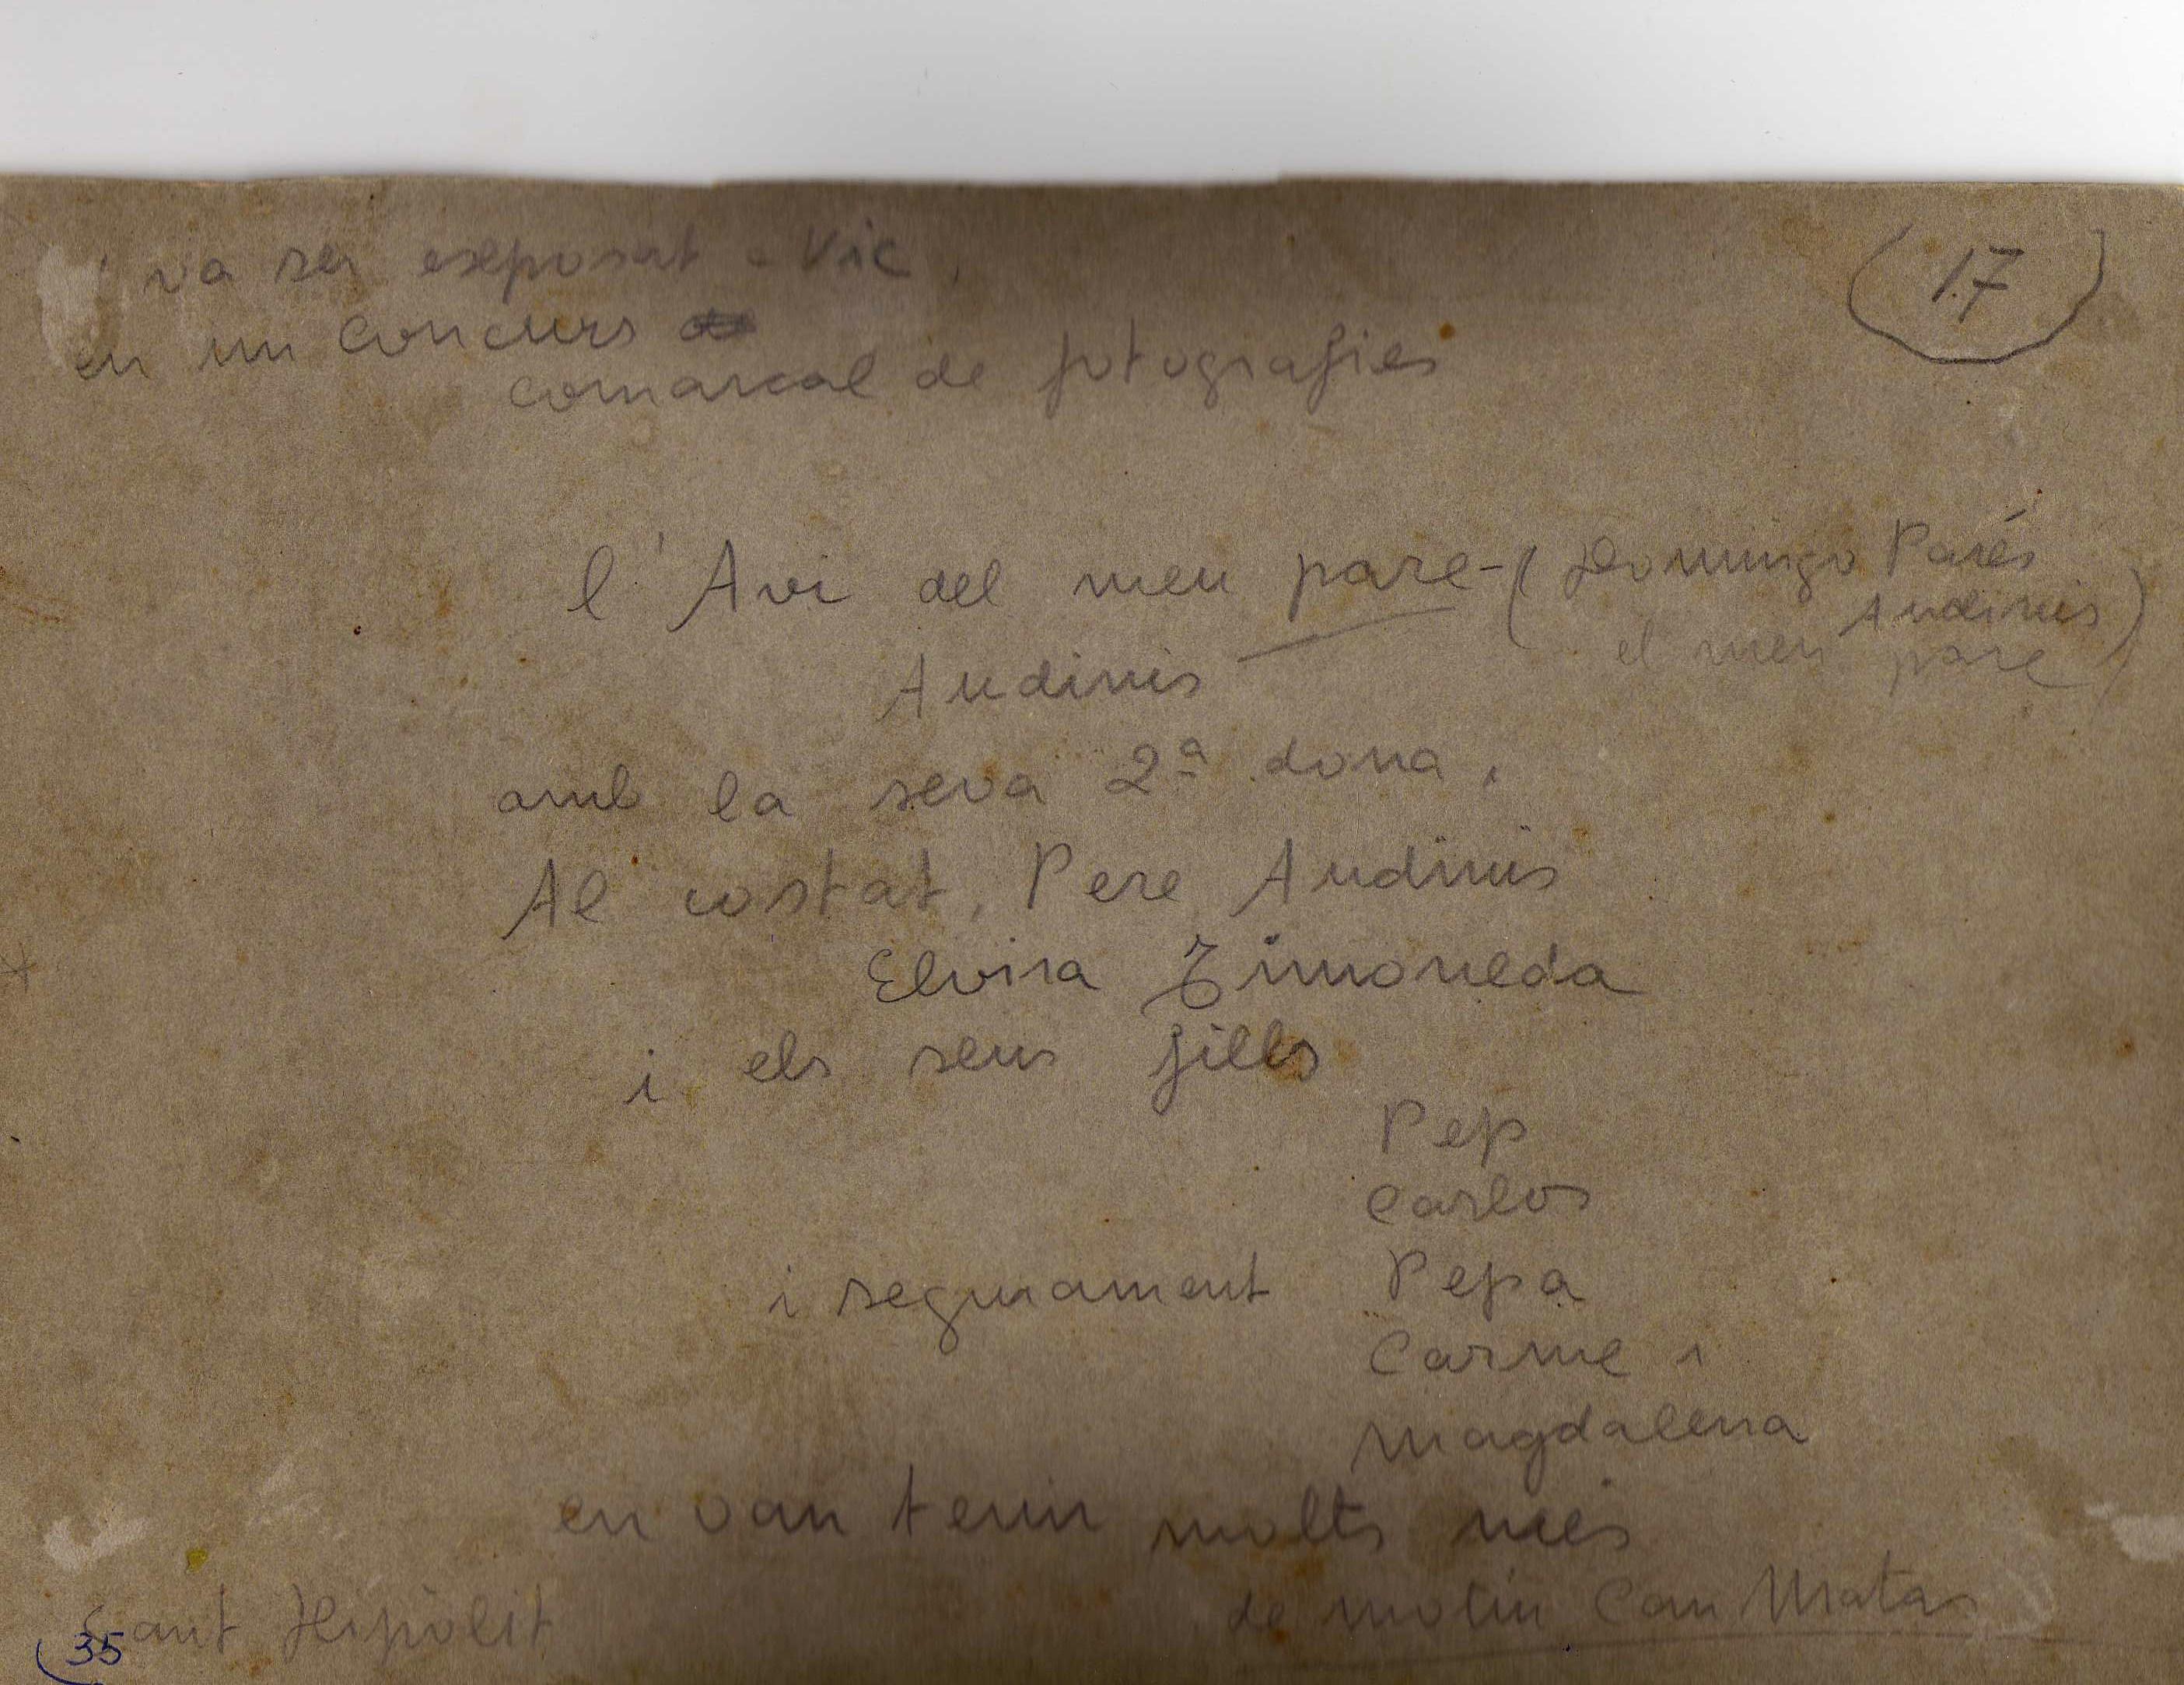 i va ser exposat a Vic,
17
en un concurs
comarcal de fotografies
l'Avi del meu pare - (Domingo Parés
Audinis)
el meu pare)
Audinis
amb la seva 2ª dona.
Al costat, Pere Audinis
Elvira Timoneda
i els seus fills
Pep
Carlos
i segurament Pepa
Carme i
Magdalena
en van tenir molts més
Sant Hipòlit
de molin Can Matas
35